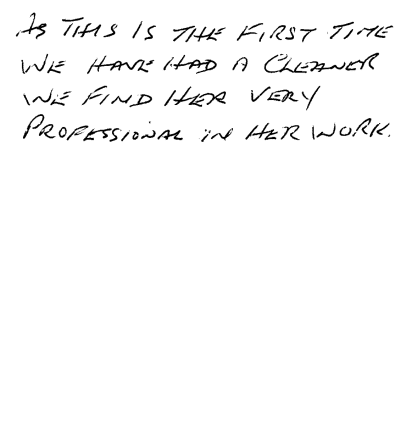 AS THIS IS THE FIRST TIME
WE HAVE HAD A CLEANER
WE FIND HER VERY
PROFESSIONAL IN HER WORK.